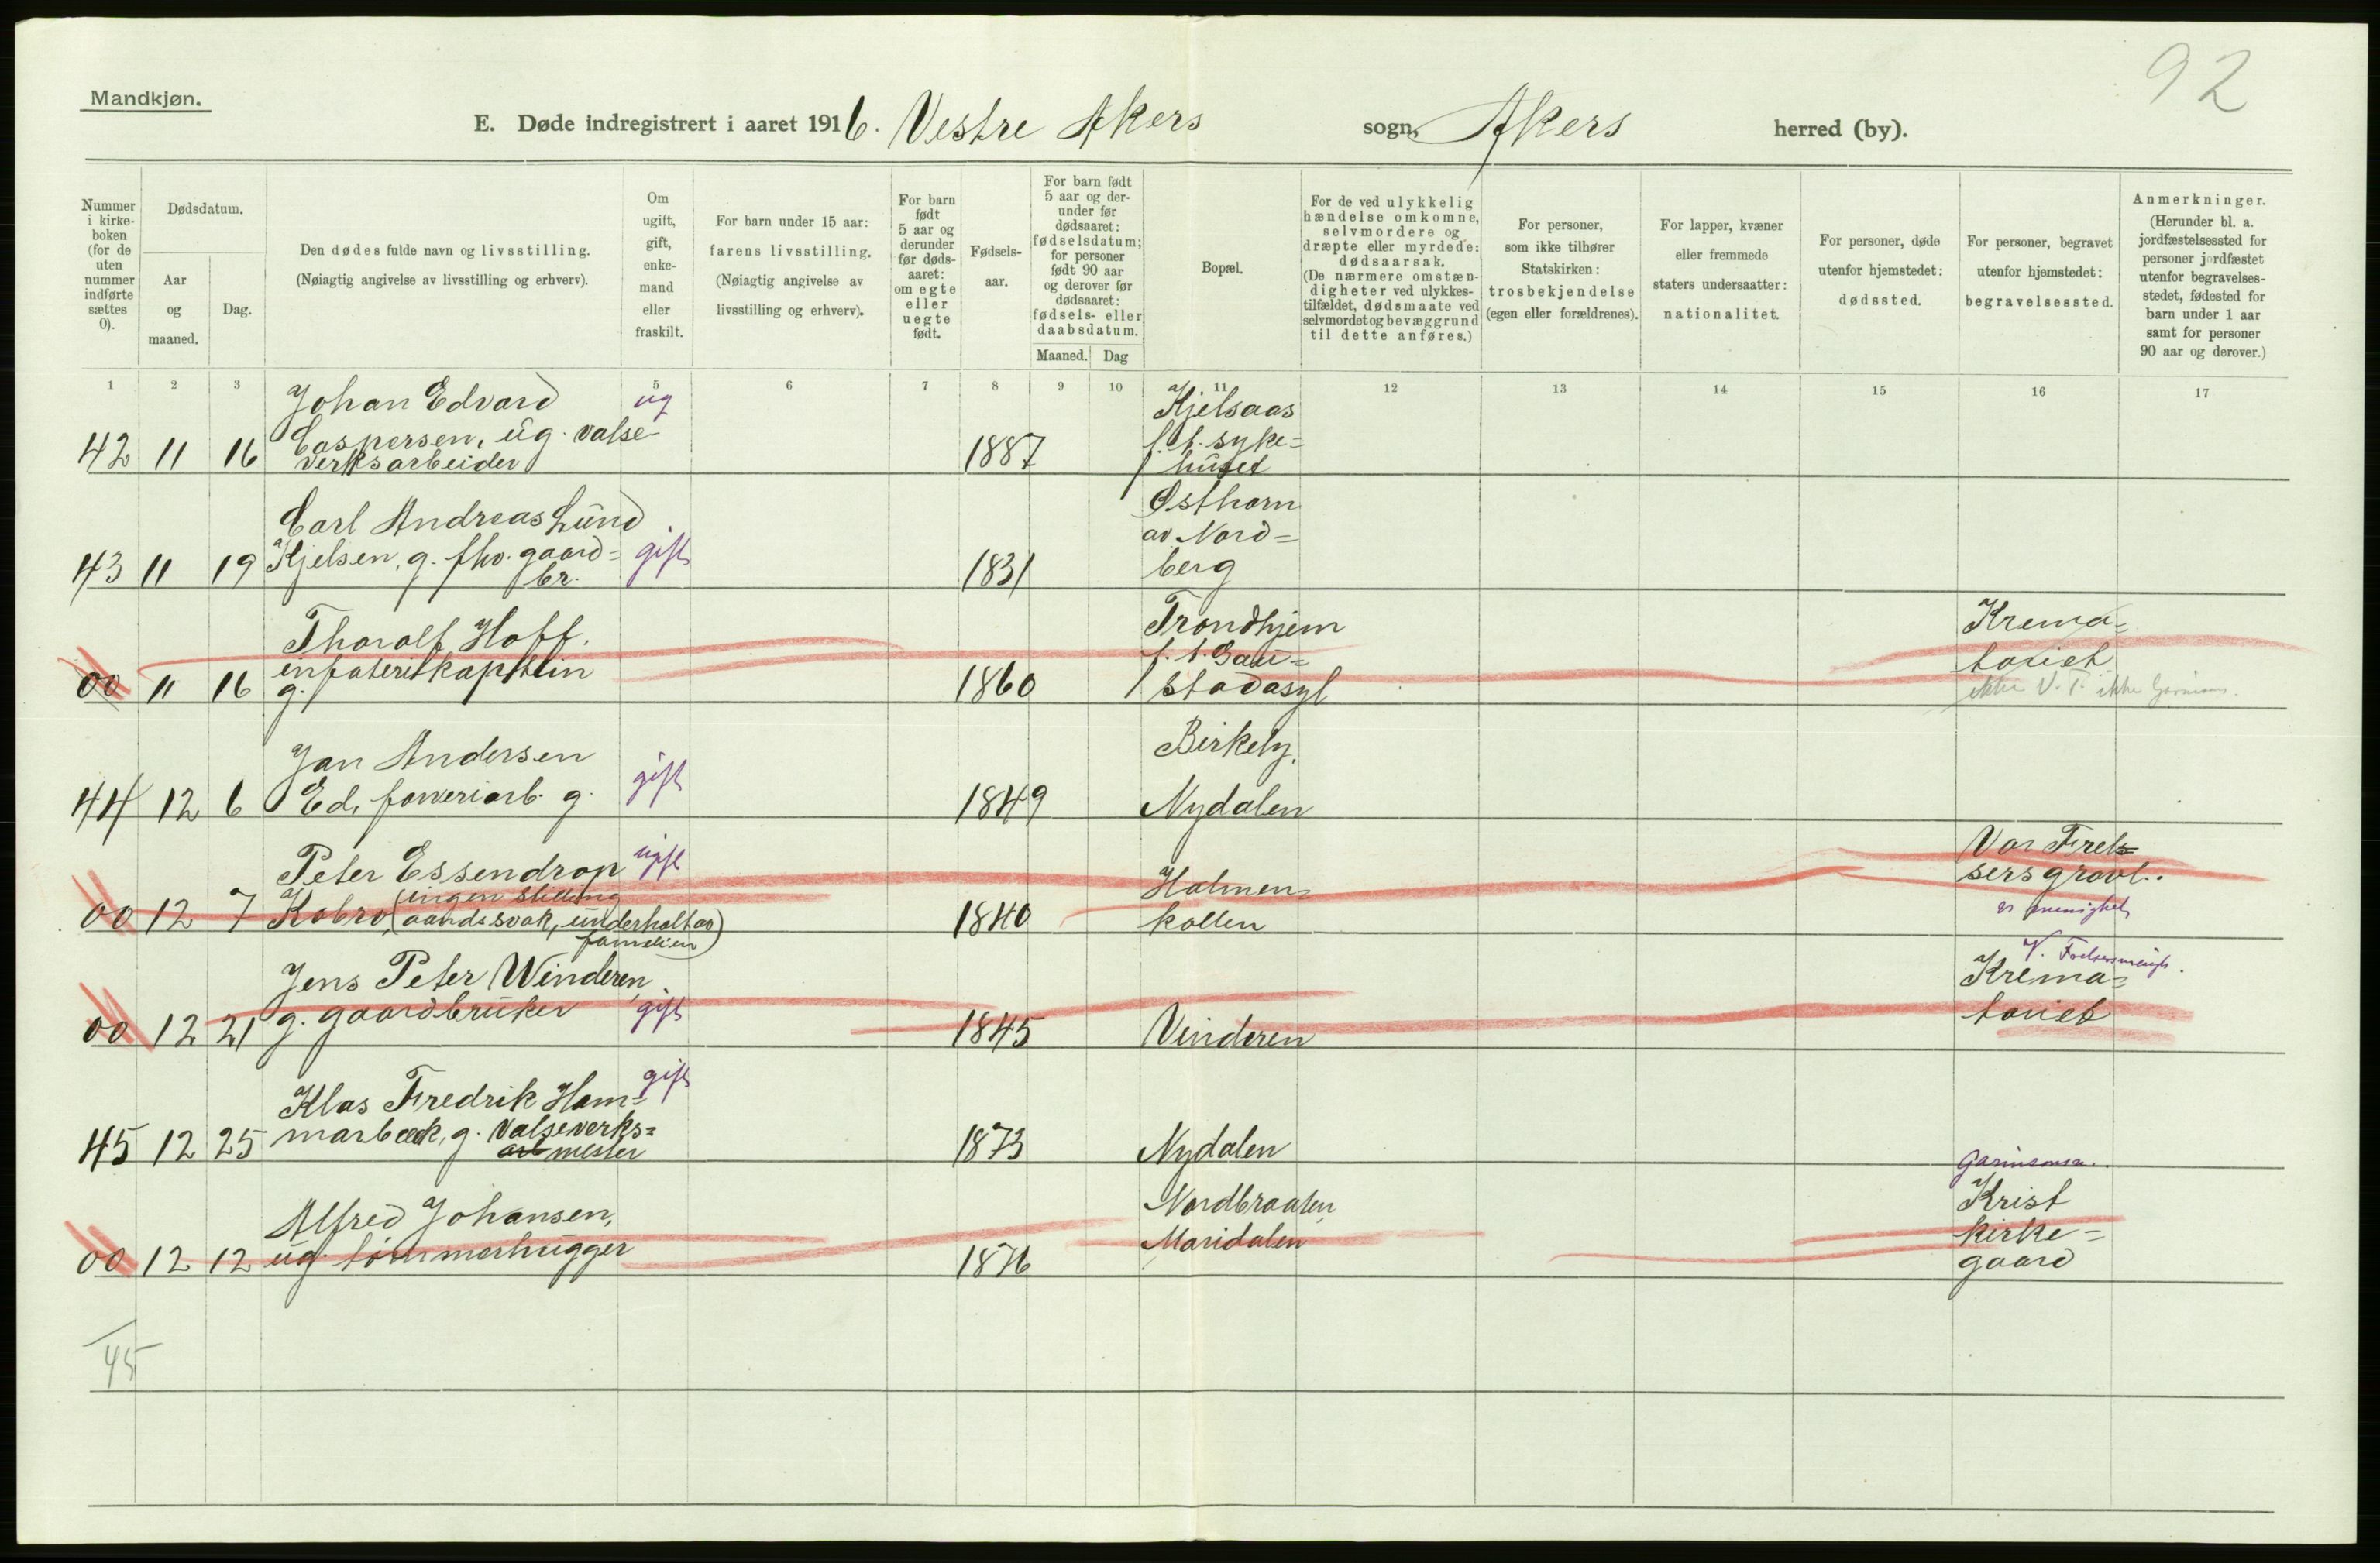 92
Mandkjøn.
E. Døde indregistrert i aaret 1916. Vestre Akers sogn, Akers herred (by).
Nummer i kirke-boken (for de uten nummer indførte sættes 0).
Dødsdatum.
Aar og maaned.
Dag.
Den dødes fulde navn og livsstilling.
(Nøiagtig angivelse av livsstilling og erhverv).
Om ugift, gift, enke-mand eller fraskilt.
For barn under 15 aar: farens livsstilling.
(Nøiagtig angivelse av livsstilling og erhverv).
For barn født 5 aar og derunder før døds-aaret: om egte eller uegte født.
Fødsels-aar.
For barn født 5 aar og der-under før dødsaaret: fødselsdatum; for personer født 90 aar og derover før dødsaaret: fødsels- eller daabsdatum.
Maaned. Dag
Bopæl.
For de ved ulykkelig hændelse omkomne, selvmordere og dræpte eller myrdede: dødsaarsak.
(De nærmere omstæn-digheter ved ulykkes-tilfældet, dødsmaate ved selvmordet og bevæggrund til dette anføres.)
For personer, som ikke tilhører Statskirken: trosbekjendelse (egen eller forældrenes).
For lapper, kvæner eller fremmede staters undersaatter: nationalitet.
For personer, døde utenfor hjemstedet: dødssted.
For personer, begravet utenfor hjemstedet: begravelsessted.
Anmerkninger.
(Herunder bl. a. jordfæstelsessted for personer jordfæstet utenfor begravelses-stedet, fødested for barn under 1 aar samt for personer 90 aar og derover.)
1 2 3 5 6 7 8 9 10 11 12 13 14 15 16 17
Johan Edvard ug Kjelsaas
Caspersen, ug. valse- f. t. syke=
42 11 16 verksarbeider 1887 huset
Carl Andreas Lund Østhorn
Kjelsen, g. fhv. gaard= gift av Nord=
43 11 19 br. 1831 berg
Thoralf Hoff. Trondhjem Krema=
infanterikaptein f. t. Gau= toriet
00 11 16 g. 1860 stadasyl ikke V. F. ikke
Jan Andersen gift Birkely,
44 12 6 Ed, farveriarb. g. 1849 Nydalen
Peter Essendrop ugift Vor Frel=
(ingen stilling Holmen= sers gravl.
00 12 7 Kobro, aandssvak, underholdt av 1840 kollen menighet
familien)
Jens Peter Winderen, Krema=
00 12 21 g. gaardbruker gift 1845 Vinderen toriet
Klas Fredrik Ham= gift
marbeck, g. Valseverks=
45 12 25 arb mester 1873 Nydalen
Garnisons
Alfred Johansen, Nordbraaten Krist
Maridalen kirke=
00 12 12 ug. tømmerhugger 1876 gaard
45